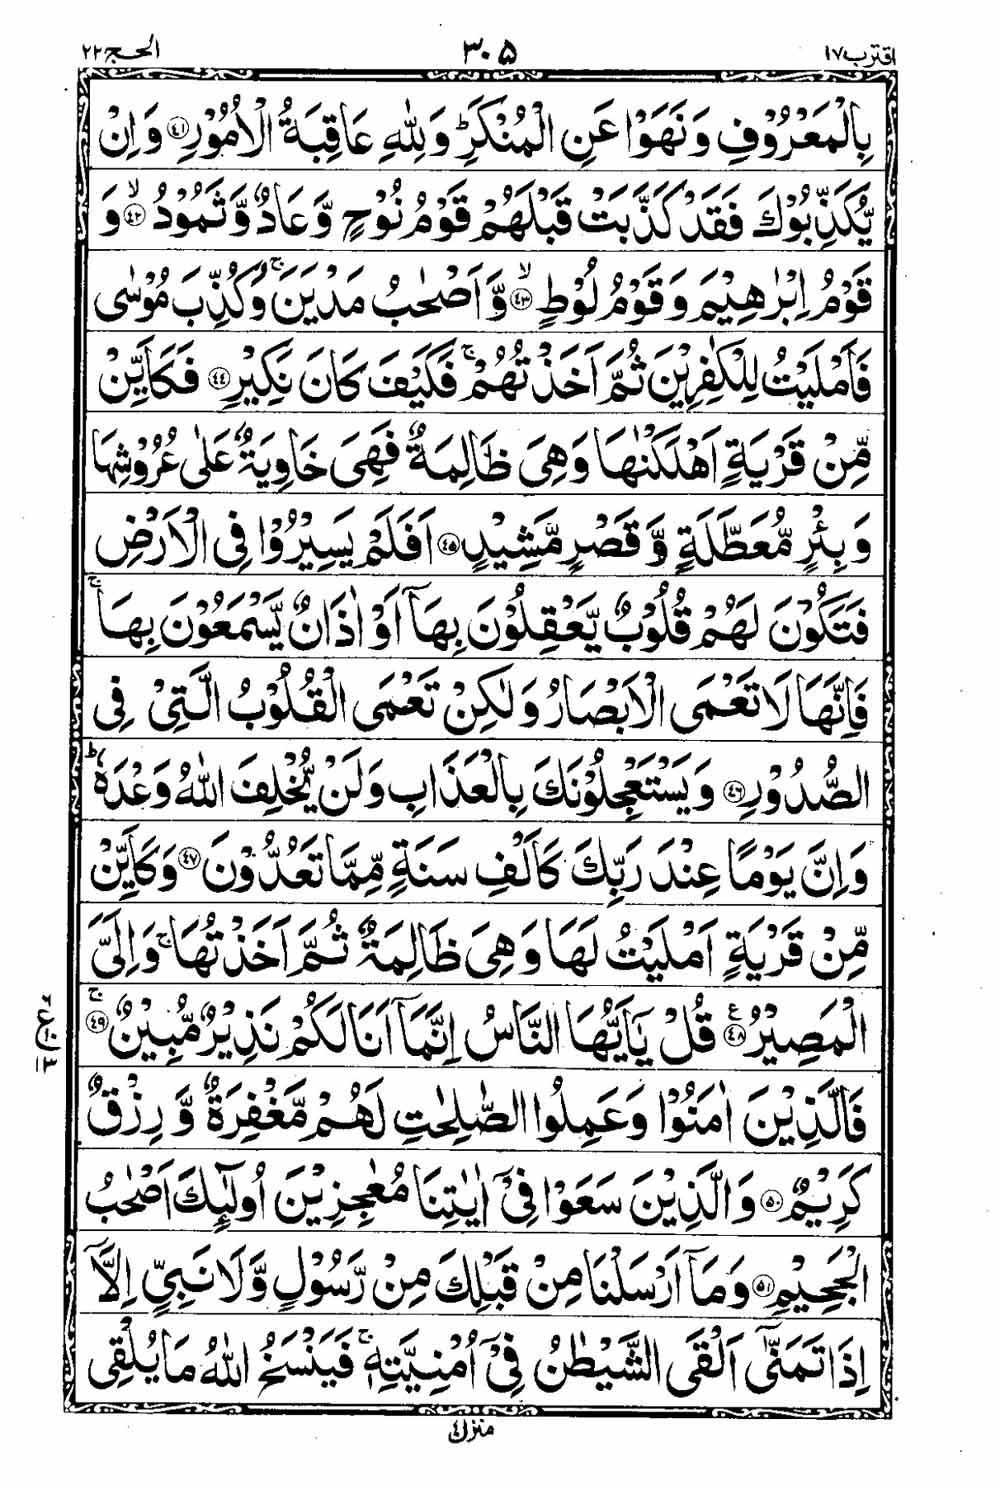 اقترب ١٧
٣٠٥
الحج ٢٢
بِالْمَعْرُوْفِ وَنَهَوْا عَنِ الْمُنْكَرِ ؕ وَلِلّٰهِ عَاقِبَةُ الْاُمُوْرِ ﴿٤١﴾ وَاِنْ
يُّكَذِّبُوْكَ فَقَدْ كَذَّبَتْ قَبْلَهُمْ قَوْمُ نُوْحٍ وَّعَادٌ وَّثَمُوْدُ ۙ﴿٤٢﴾ وَ
قَوْمُ اِبْرٰهِيْمَ وَقَوْمُ لُوْطٍ ۙ﴿٤٣﴾ وَّاَصْحٰبُ مَدْيَنَ ۚ وَكُذِّبَ مُوْسٰى
فَاَمْلَيْتُ لِلْكٰفِرِيْنَ ثُمَّ اَخَذْتُهُمْ ۚ فَكَيْفَ كَانَ نَكِيْرِ ﴿٤٤﴾ فَكَاَيِّنْ
مِّنْ قَرْيَةٍ اَهْلَكْنٰهَا وَهِىَ ظَالِمَةٌ فَهِىَ خَاوِيَةٌ عَلٰى عُرُوْشِهَا
وَبِئْرٍ مُّعَطَّلَةٍ وَّقَصْرٍ مَّشِيْدٍ ﴿٤٥﴾ اَفَلَمْ يَسِيْرُوْا فِى الْاَرْضِ
فَتَكُوْنَ لَهُمْ قُلُوْبٌ يَّعْقِلُوْنَ بِهَاۤ اَوْ اٰذَانٌ يَّسْمَعُوْنَ بِهَا ۚ
فَاِنَّهَا لَا تَعْمَى الْاَبْصَارُ وَلٰكِنْ تَعْمَى الْقُلُوْبُ الَّتِىْ فِى
الصُّدُوْرِ ﴿٤٦﴾ وَيَسْتَعْجِلُوْنَكَ بِالْعَذَابِ وَلَنْ يُّخْلِفَ اللّٰهُ وَعْدَهٗ ؕ
وَاِنَّ يَوْمًا عِنْدَ رَبِّكَ كَاَلْفِ سَنَةٍ مِّمَّا تَعُدُّوْنَ ﴿٤٧﴾ وَكَاَيِّنْ
مِّنْ قَرْيَةٍ اَمْلَيْتُ لَهَا وَهِىَ ظَالِمَةٌ ثُمَّ اَخَذْتُهَا ۚ وَاِلَىَّ
الْمَصِيْرُ ﴿٤٨﴾ قُلْ يٰۤاَيُّهَا النَّاسُ اِنَّمَاۤ اَنَا لَكُمْ نَذِيْرٌ مُّبِيْنٌ ۚ﴿٤٩﴾
فَالَّذِيْنَ اٰمَنُوْا وَعَمِلُوا الصّٰلِحٰتِ لَهُمْ مَّغْفِرَةٌ وَّرِزْقٌ
كَرِيْمٌ ﴿٥٠﴾ وَالَّذِيْنَ سَعَوْا فِىْۤ اٰيٰتِنَا مُعٰجِزِيْنَ اُولٰٓئِكَ اَصْحٰبُ
الْجَحِيْمِ ﴿٥١﴾ وَمَاۤ اَرْسَلْنَا مِنْ قَبْلِكَ مِنْ رَّسُوْلٍ وَّلَا نَبِىٍّ اِلَّاۤ
اِذَا تَمَنّٰٓى اَلْقَى الشَّيْطٰنُ فِىْۤ اُمْنِيَّتِهٖ ۚ فَيَنْسَخُ اللّٰهُ مَا يُلْقِى
منزل ٤